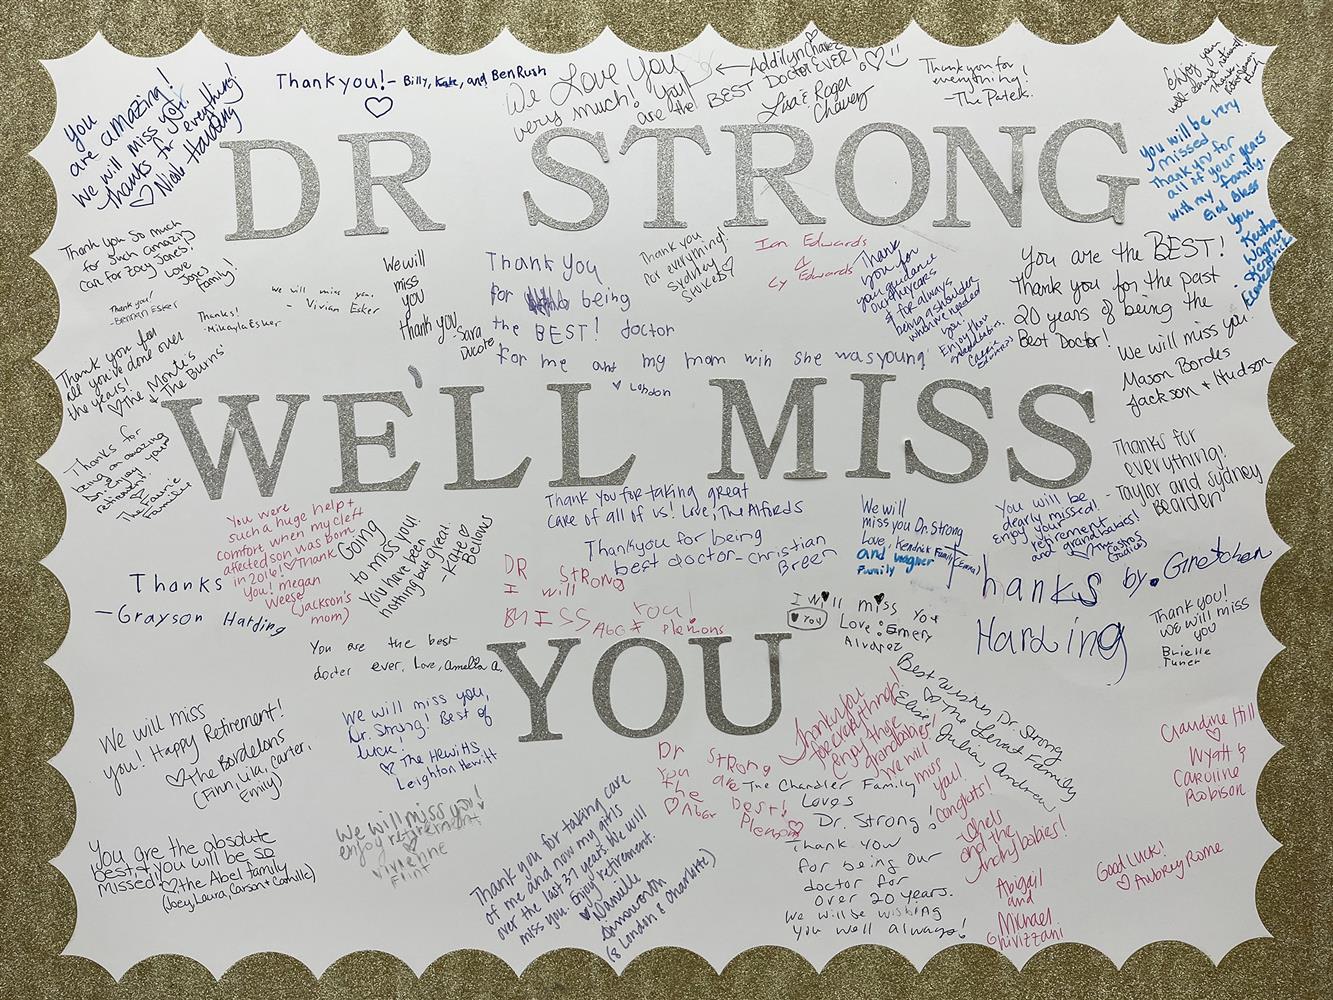 DR STRONG
WE'LL MISS
YOU
You
are amazing!
We will miss you.
Thanks for everything!
♡ Nicole Harding
Thank you! - Billy, Kate, and Ben Rush
♡
We Love You
very much! You
are the BEST DOCTOR EVER!
← Addilyn Chavez
Lisa & Roger
Chavez
Thank you for
everything!
- The Patels.
Enjoy your
well-deserved retirement!
You will be very
missed
Thank you for
all of your years
with my family.
God Bless
You
Thank you so much
for such amazing
care for Zoey Jones!
Love
Jones
Family!
Thank you!
- Bennan Esker
Thanks!
- Mikayla Esker
We will miss you.
- Vivian Esker
We will
miss
you
Thank you
Sara
Ducote
Thank you
for being
the BEST! doctor
for me and my mom win she was young
♥ London
Thank you
for everything!
Sydney
Shikes ♡
Ian Edwards
&
Cy Edwards
Thank
you for
your guidance
over the years
& for always
being a shoulder
when we needed
you.
Enjoy this
You are the BEST!
Thank you for the past
20 years of being the
Best Doctor!
We will miss you.
Mason Bordes
Jackson + Hudson
Thank you for
all you've done over
the years!
♡ The Montz's
+ The Burns'
Thanks for
being an amazing
Dr! Enjoy
retirement!
The Faurie
Family
Thanks for
everything!
- Taylor and Sydney
Bearden
You were
such a huge help +
comfort when my cleft
affected son was born
in 2016! ♡ Thank
you! megan
Weese
(Jackson's
mom)
Going
to miss you!
You have been
nothing but great.
- Katie ♡
Bellows
Thank you for taking great
care of all of us! Love, The Alfords
Thankyou for being
best doctor - Christian
Breen
We will
miss you Dr. Strong
Love, Kendrick Family (Emma)
and Wagner
Family
You will be
dearly missed!
Enjoy your
retirement
and grandbabies!
♡ The Castros
Thanks
- Grayson Harding
DR STRONG
I will
MISS You!
Abbi Plemons
I will miss You
♥ You
Love: Emery
Alvarez
Thanks by. Gretchen
Harding
Thank you!
We will miss
you
Brielle
Turner
You are the best
docter ever. Love, Amelia A.
We will miss
you! Happy Retirement!
♡ The Bordelons
(Finn, Lila, Carter,
Emily)
We will miss you,
Dr. Strong! Best of
luck!
♡ The Hewitts
Leighton Hewitt
Best Wishes, Dr. Strong
♡ The Levad Family
Elise, Julia, Andrew
Thank you
for everything!
Enjoy the
grandbabies!
We will
miss
you!
Congrats!
Dr Strong
You are
the best!
Plemon
The Chandler Family
Loves
Dr. Strong!
Thank you
for being our
doctor for
over 20 years.
We will be wishing
you well always!
Claudine Hill
♡
Wyatt &
Caroline
Robison
We will miss you!
enjoy retirement
♡
Vivienne
Flint
You are the absolute
best! You will be so
missed! ♡ the Abel family
(Joey, Laura, Carson + Camille)
Thank you for taking care
of me and now my girls
over the last 37 years. We will
miss you. Enjoy retirement.
♥ Danielle
Ainsworth
(& London & Charlotte)
Abigail
and
Michael
Ghirizzani
Good luck!
♡ Aubrey Rome